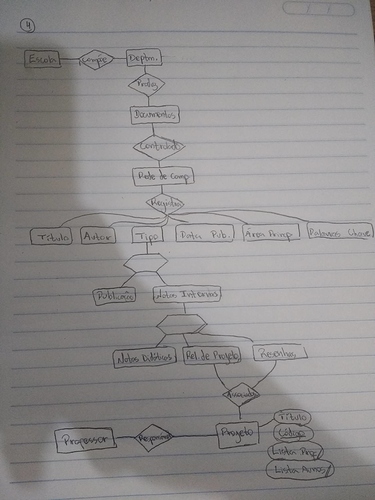 4
Escola
Compõe
Deptm.
Produz
Documentos
Controlad
Rede de Comp
Registra
Título
Autor
Tipo
Data Pub.
Área Princp
Palavras Chave
Publicação
Notas Internas
Notas Didáticas
Rel. de Projeto
Resenhas
Associado
Professor
Projeto
Título
Código
Listar Prof/
Listar Alunos/